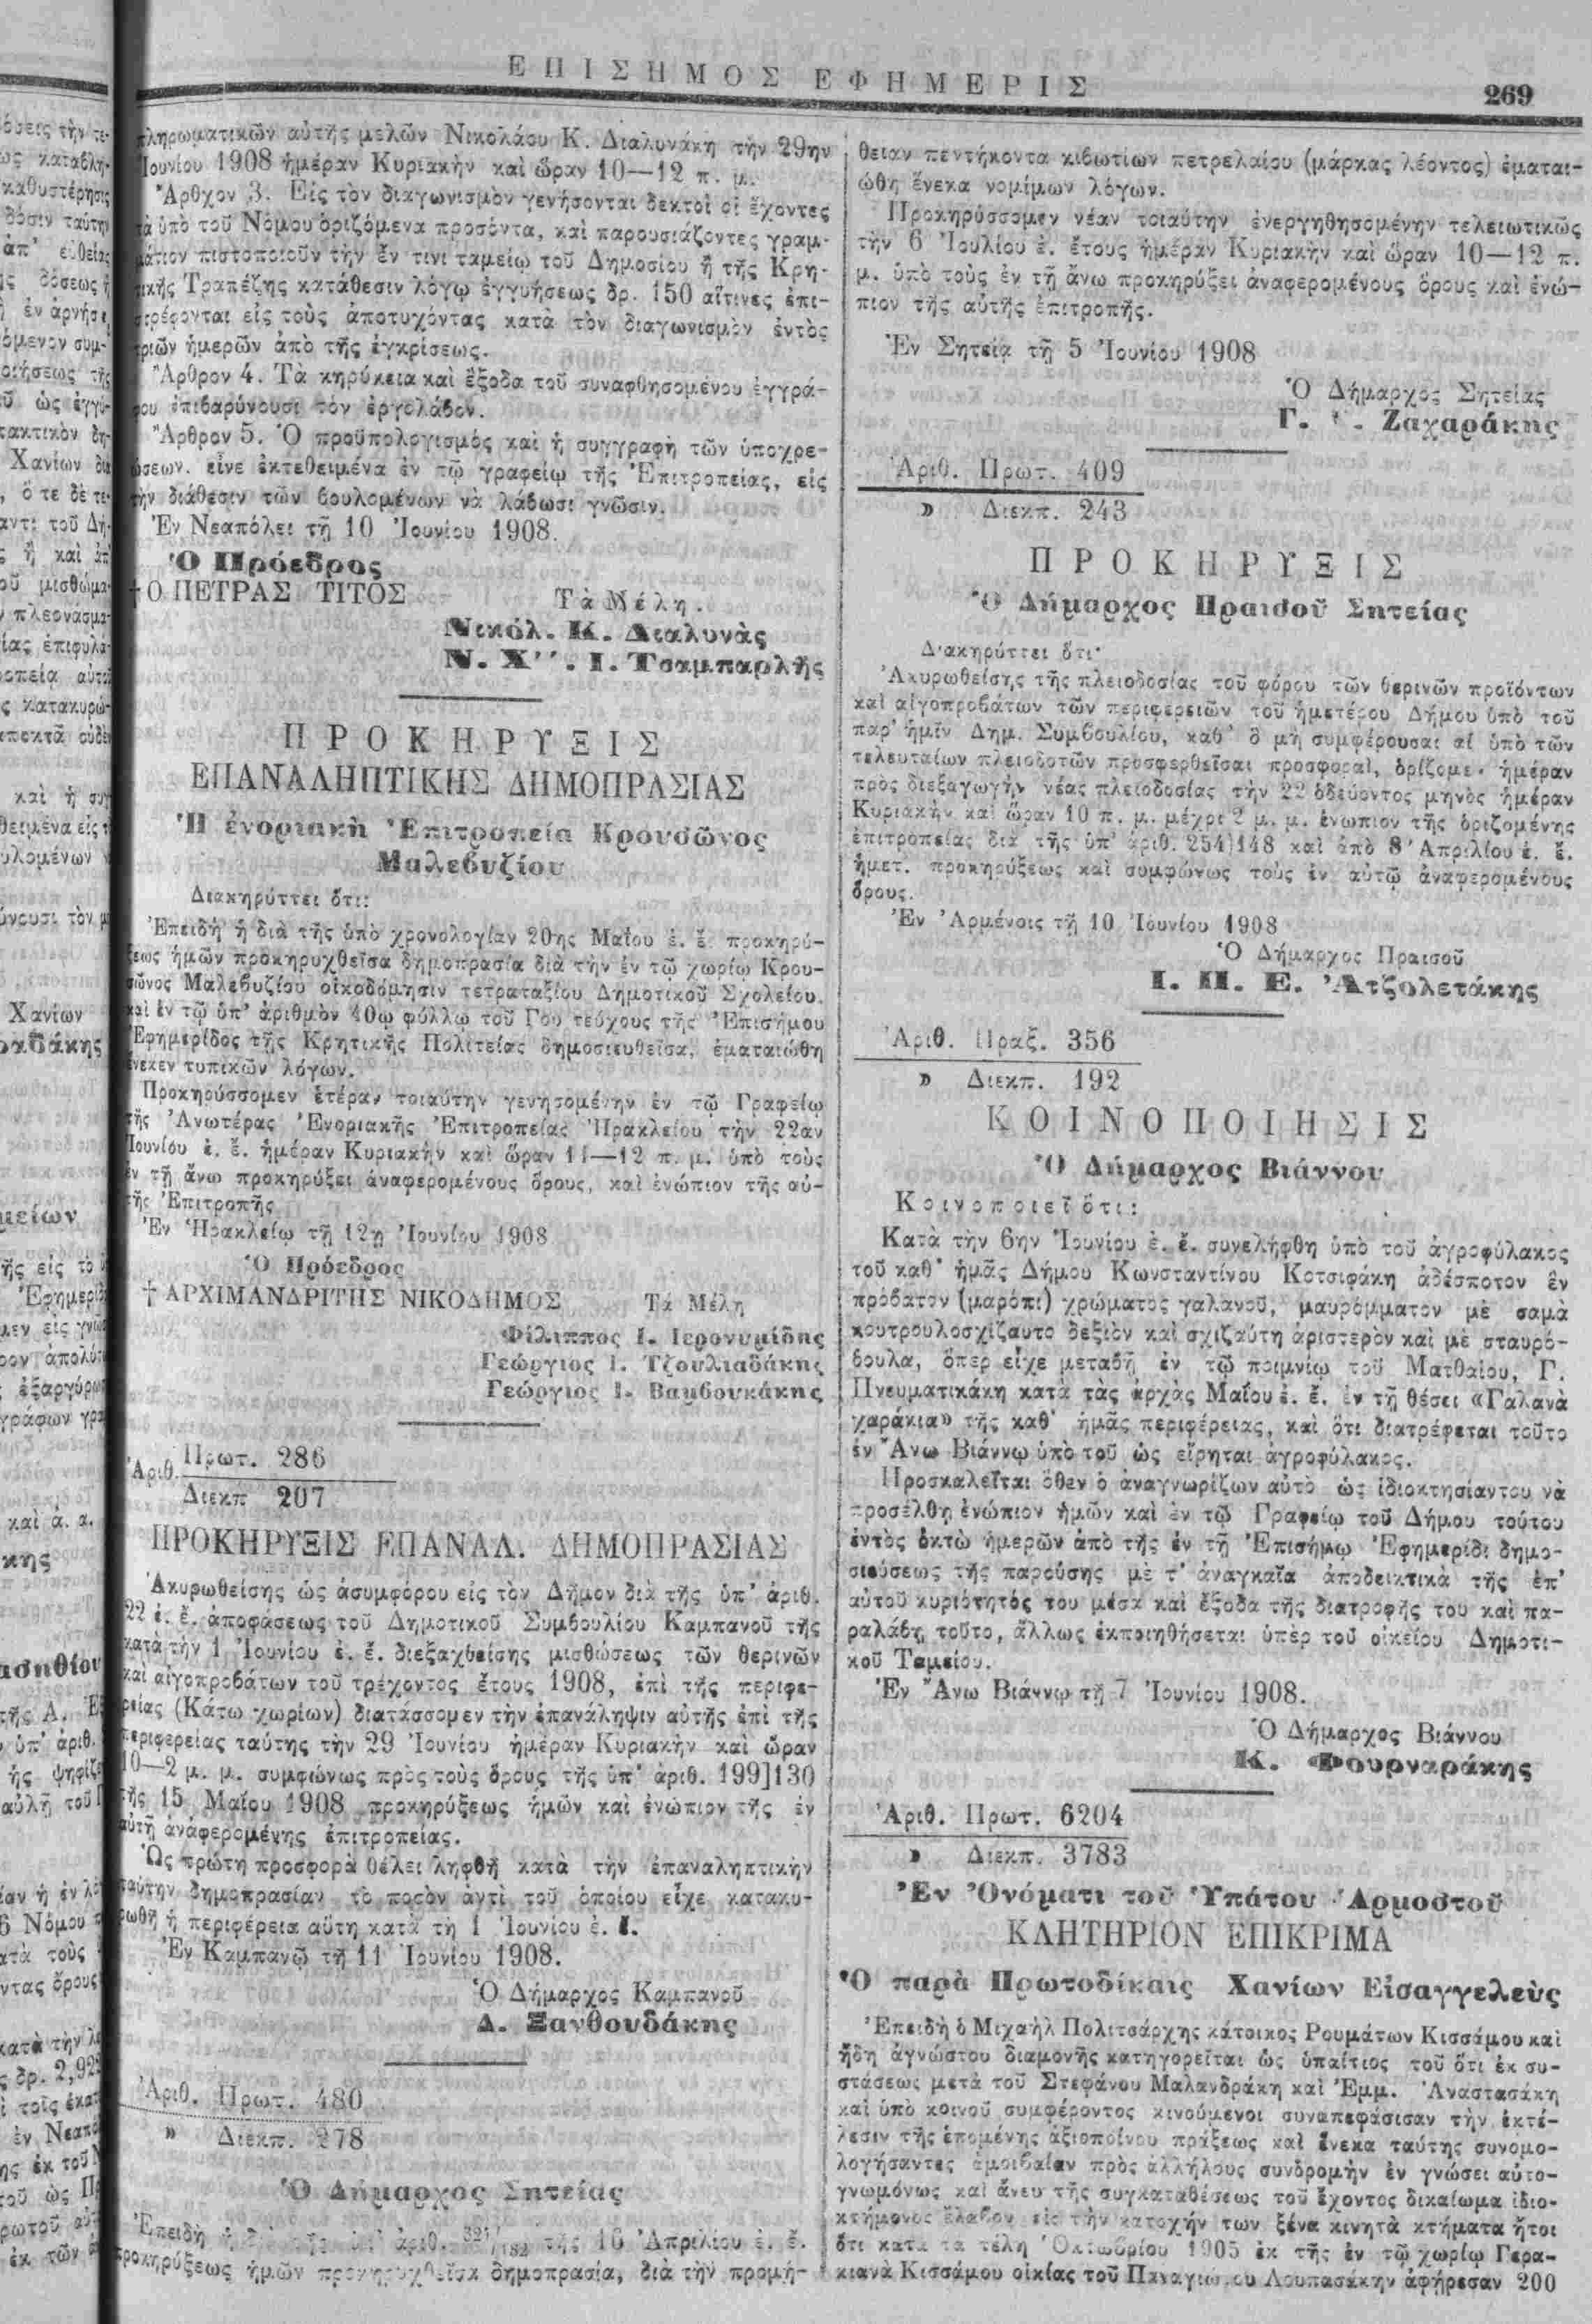 ΕΠΙΣΗΜΟΣ ΕΦΗΜΕΡΙΣ
269
πληρωματικῶν αὐτῆς μελῶν Νικολάου Κ. Διαλυνάκη τὴν 29ην
Ἰουνίου 1908 ἡμέραν Κυριακὴν καὶ ὥραν 10—12 π. μ.
Ἄρθχον 3. Εἰς τὸν διαγωνισμὸν γενήσονται δεκτοὶ οἱ ἔχοντες
τὰ ὑπὸ τοῦ Νόμου ὁριζόμενα προσόντα, καὶ παρουσιάζοντες γραμ-
μάτιον πιστοποιοῦν τὴν ἔν τινι ταμείῳ τοῦ Δημοσίου ἢ τῆς Κρη-
τικῆς Τραπέζης κατάθεσιν λόγῳ ἐγγυήσεως δρ. 150 αἵτινες ἐπι-
στρέφονται εἰς τοὺς ἀποτυχόντας κατὰ τὸν διαγωνισμὸν ἐντὸς
τριῶν ἡμερῶν ἀπὸ τῆς ἐγκρίσεως.
Ἄρθρον 4. Τὰ κηρύκεια καὶ ἔξοδα τοῦ συναφθησομένου ἐγγρά-
φου ἐπιβαρύνουσι τὸν ἐργολάβον.
Ἄρθρον 5. Ὁ προϋπολογισμὸς καὶ ἡ συγγραφὴ τῶν ὑποχρε-
ώσεων. εἶνε ἐκτεθειμένα ἐν τῷ γραφείῳ τῆς Ἐπιτροπείας, εἰς
τὴν διάθεσιν τῶν βουλομένων νὰ λάβωσι γνῶσιν.
Ἐν Νεαπόλει τῇ 10 Ἰουνίου 1908.
Ὁ Πρόεδρος
† Ο ΠΕΤΡΑΣ ΤΙΤΟΣ
Τὰ Μέλη.
Νικόλ. Κ. Διαλυνὰς
Ν. Χ''. Ι. Τσαμπαρλῆς
ΠΡΟΚΗΡΥΞΙΣ
ΕΠΑΝΑΛΗΠΤΙΚΗΣ ΔΗΜΟΠΡΑΣΙΑΣ
Ἡ ἐνοριακὴ Ἐπιτροπεία Κρουσῶνος
Μαλεβυζίου
Διακηρύττει ὅτι:
Ἐπειδὴ ἡ διὰ τῆς ὑπὸ χρονολογίαν 20ης Μαΐου ἐ. ἔ. προκηρύ-
ξεως ἡμῶν προκηρυχθεῖσα δημοπρασία διὰ τὴν ἐν τῷ χωρίῳ Κρου-
σῶνος Μαλεβυζίου οἰκοδόμησιν τετραταξίου Δημοτικοῦ Σχολείου.
καὶ ἐν τῷ ὑπ' ἀριθμὸν 40ῳ φύλλῳ τοῦ Γου τεύχους τῆς Ἐπισήμου
Ἐφημερίδος τῆς Κρητικῆς Πολιτείας δημοσιευθεῖσα, ἐματαιώθη
ἕνεκεν τυπικῶν λόγων.
Προκηρύσσομεν ἑτέραν τοιαύτην γενησομένην ἐν τῷ Γραφείῳ
τῆς Ἀνωτέρας Ἐνοριακῆς Ἐπιτροπείας Ἡρακλείου τὴν 22αν
Ἰουνίου ἐ. ἔ. ἡμέραν Κυριακὴν καὶ ὥραν 11—12 π. μ. ὑπὸ τοὺς
ἐν τῇ ἄνω προκηρύξει ἀναφερομένους ὅρους, καὶ ἐνώπιον τῆς αὐ-
τῆς Ἐπιτροπῆς
Ἐν Ἡρακλείῳ τῇ 12ῃ Ἰουνίου 1908
Ὁ Πρόεδρος
† ΑΡΧΙΜΑΝΔΡΙΤΗΣ ΝΙΚΟΔΗΜΟΣ
Τὰ Μέλη
Φίλιππος Ι. Ιερονυμίδης
Γεώργιος Ι. Τζουλιαδάκης
Γεώργιος Ι. Βαμβουκάκης
Ἀριθ. Πρωτ. 286
Διεκπ 207
ΠΡΟΚΗΡΥΞΙΣ ΕΠΑΝΑΛ. ΔΗΜΟΠΡΑΣΙΑΣ
Ἀκυρωθείσης ὡς ἀσυμφόρου εἰς τὸν Δῆμον διὰ τῆς ὑπ' ἀριθ.
22 ἐ. ἔ. ἀποφάσεως τοῦ Δημοτικοῦ Συμβουλίου Καμπανοῦ τῆς
κατὰ τὴν 1 Ἰουνίου ἐ. ἔ. διεξαχθείσης μισθώσεως τῶν θερινῶν
καὶ αἰγοπροβάτων τοῦ τρέχοντος ἔτους 1908, ἐπὶ τῆς περιφε-
ρείας (Κάτω χωρίων) διατάσσομεν τὴν ἐπανάληψιν αὐτῆς ἐπὶ τῆς
περιφερείας ταύτης τὴν 29 Ἰουνίου ἡμέραν Κυριακὴν καὶ ὥραν
10—2 μ. μ. συμφώνως πρὸς τοὺς ὅρους τῆς ὑπ' ἀριθ. 199]130
τῆς 15 Μαΐου 1908 προκηρύξεως ἡμῶν καὶ ἐνώπιον τῆς ἐν
αὐτῇ ἀναφερομένης ἐπιτροπείας.
Ὡς πρώτη προσφορὰ θέλει ληφθῆ κατὰ τὴν ἐπαναληπτικὴν
ταύτην δημοπρασίαν τὸ ποσὸν ἀντὶ τοῦ ὁποίου εἶχε κατακυ-
ρωθῆ ἡ περιφέρεια αὕτη κατὰ τὴ 1 Ἰουνίου ἐ. ἔ.
Ἐν Καμπανῷ τῇ 11 Ἰουνίου 1908.
Ὁ Δήμαρχος Καμπανοῦ
Δ. Ξανθουδάκης
Ἀριθ. Πρωτ. 480
» Διεκπ. 278
Ὁ Δήμαρχος Σητείας
Ἐπειδὴ ἡ διὰ τῆς ὑπ' ἀριθ. 321/182 τῆς 16 Ἀπριλίου ἐ. ἔ.
προκηρύξεως ἡμῶν προκηρυχθεῖσα δημοπρασία, διὰ τὴν προμή-
θειαν πεντήκοντα κιβωτίων πετρελαίου (μάρκας λέοντος) ἐμαται-
ώθη ἕνεκα νομίμων λόγων.
Προκηρύσσομεν νέαν τοιαύτην ἐνεργηθησομένην τελειωτικῶς
τὴν 6 Ἰουλίου ἐ. ἔτους ἡμέραν Κυριακὴν καὶ ὥραν 10—12 π.
μ. ὑπὸ τοὺς ἐν τῇ ἄνω προκηρύξει ἀναφερομένους ὅρους καὶ ἐνώ-
πιον τῆς αὐτῆς ἐπιτροπῆς.
Ἐν Σητείᾳ τῇ 5 Ἰουνίου 1908
Ὁ Δήμαρχος Σητείας
Γ. . Ζαχαράκης
Ἀριθ. Πρωτ. 409
» Διεκπ. 243
ΠΡΟΚΗΡΥΞΙΣ
Ὁ Δήμαρχος Πραισοῦ Σητείας
Διακηρύττει ὅτι·
Ἀκυρωθείσης τῆς πλειοδοσίας τοῦ φόρου τῶν θερινῶν προϊόντων
καὶ αἰγοπροβάτων τῶν περιφερειῶν τοῦ ἡμετέρου Δήμου ὑπὸ τοῦ
παρ' ἡμῖν Δημ. Συμβουλίου, καθ' ὃ μὴ συμφέρουσαι αἱ ὑπὸ τῶν
τελευταίων πλειοδοτῶν προσφερθεῖσαι προσφοραί, ὁρίζομεν ἡμέραν
πρὸς διεξαγωγὴν νέας πλειοδοσίας τὴν 22 ὁδεύοντος μηνὸς ἡμέραν
Κυριακὴν καὶ ὥραν 10 π. μ. μέχρι 2 μ. μ. ἐνώπιον τῆς ὁριζομένης
ἐπιτροπείας διὰ τῆς ὑπ' ἀριθ. 254)148 καὶ ἀπὸ 8 Ἀπριλίου ἐ. ἔ.
ἡμετ. προκηρύξεως καὶ συμφώνως τοὺς ἐν αὐτῷ ἀναφερομένους
ὅρους.
Ἐν Ἀρμένοις τῇ 10 Ἰουνίου 1908
Ὁ Δήμαρχος Πραισοῦ
Ι. Π. Ε. Ἀτζολετάκης
Ἀριθ. Πραξ. 356
» Διεκπ. 192
ΚΟΙΝΟΠΟΙΗΣΙΣ
Ὁ Δήμαρχος Βιάννου
Κοινοποιεῖ ὅτι:
Κατὰ τὴν 6ην Ἰουνίου ἐ. ἔ. συνελήφθη ὑπὸ τοῦ ἀγροφύλακος
τοῦ καθ' ἡμᾶς Δήμου Κωνσταντίνου Κοτσιφάκη ἀδέσποτον ἓν
πρόβατον (μαρόπι) χρώματος γαλανοῦ, μαυρόμματον μὲ σαμὰ
κουτρουλοσχίζαυτο δεξιὸν καὶ σχιζαύτη ἀριστερὸν καὶ μὲ σταυρό-
βουλα, ὅπερ εἶχε μεταβῆ ἐν τῷ ποιμνίῳ τοῦ Ματθαίου, Γ.
Πνευματικάκη κατὰ τὰς ἀρχὰς Μαΐου ἐ. ἔ. ἐν τῇ θέσει «Γαλανὰ
χαράκια» τῆς καθ' ἡμᾶς περιφέρειας, καὶ ὅτι διατρέφεται τοῦτο
ἐν Ἄνω Βιάννῳ ὑπὸ τοῦ ὡς εἴρηται ἀγροφύλακος.
Προσκαλεῖται ὅθεν ὁ ἀναγνωρίζων αὐτὸ ὡς ἰδιοκτησίαντου νὰ
προσέλθῃ ἐνώπιον ἡμῶν καὶ ἐν τῷ Γραφείῳ τοῦ Δήμου τούτου
ἐντὸς ὀκτὼ ἡμερῶν ἀπὸ τῆς ἐν τῇ Ἐπισήμῳ Ἐφημερίδι δημο-
σιεύσεως τῆς παρούσης μὲ τ' ἀναγκαῖα ἀποδεικτικὰ τῆς ἐπ'
αὐτοῦ κυριότητός του μέσα καὶ ἔξοδα τῆς διατροφῆς του καὶ πα-
ραλάβῃ τοῦτο, ἄλλως ἐκποιηθήσεται ὑπὲρ τοῦ οἰκείου Δημοτι-
κοῦ Ταμείου.
Ἐν Ἄνω Βιάννῳ τῇ 7 Ἰουνίου 1908.
Ὁ Δήμαρχος Βιάννου
Κ. Φουρναράκης
Ἀριθ. Πρωτ. 6204
» Διεκπ. 3783
Ἐν Ὀνόματι τοῦ Ὑπάτου Ἁρμοστοῦ
ΚΛΗΤΗΡΙΟΝ ΕΠΙΚΡΙΜΑ
Ὁ παρὰ Πρωτοδίκαις Χανίων Εἰσαγγελεὺς
Ἐπειδὴ ὁ Μιχαὴλ Πολιτσάρχης κάτοικος Ρουμάτων Κισσάμου καὶ
ἤδη ἀγνώστου διαμονῆς κατηγορεῖται ὡς ὑπαίτιος τοῦ ὅτι ἐκ συ-
στάσεως μετὰ τοῦ Στεφάνου Μαλανδράκη καὶ Ἐμμ. Ἀναστασάκη
καὶ ὑπὸ κοινοῦ συμφέροντος κινούμενοι συναπεφάσισαν τὴν ἐκτέ-
λεσιν τῆς ἑπομένης ἀξιοποίνου πράξεως καὶ ἕνεκα ταύτης συνομο-
λογήσαντες ἀμοιβαίαν πρὸς ἀλλήλους συνδρομὴν ἐν γνώσει αὐτο-
γνωμόνως καὶ ἄνευ τῆς συγκαταθέσεως τοῦ ἔχοντος δικαίωμα ἰδιο-
κτήμονος ἔλαβον εἰς τὴν κατοχήν των ξένα κινητὰ κτήματα ἤτοι
ὅτι κατὰ τὰ τέλη Ὀκτωβρίου 1905 ἐκ τῆς ἐν τῷ χωρίῳ Γερα-
κιανὰ Κισσάμου οἰκίας τοῦ Παναγιώτου Λουπασάκην ἀφῄρεσαν 200